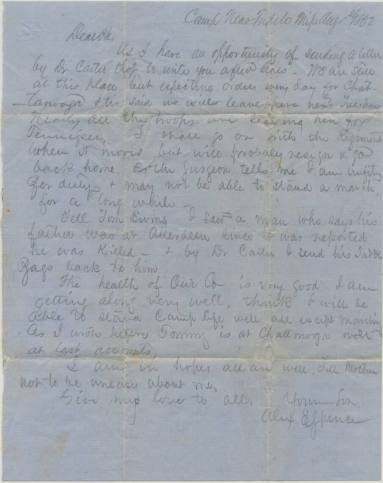 Camp Near Tupelo Miss Aug 1862
Dear
As I have an opportunity of sending a letter
by Dr Carter I write you a few lines. We are still
at this place but expecting orders every day for Chat-
tanooga & it is said we will leave here
Nearly all the troops are leaving here for
Tennessee. I shall go on with the Regiment
when it moves, but will probably resign & go
back home. As the Surgeon tells me I am unfit
for duty & may not be able to stand a march
for a long while.
Tell Tom I saw a man who says his
father was at Aberdeen since it was reported
he was Killed & by Dr Carter I send his Saddle
Bags back to him
The health of Our Co is very good I am
getting along very well, think I will be
able to stand Camp life well all except marching
As I wish Tommy is at Chattanooga
at last accounts.
I am in hopes all are well, Tell Mother
not to be uneasy about me,
Give my love to all. Your Son
Alex